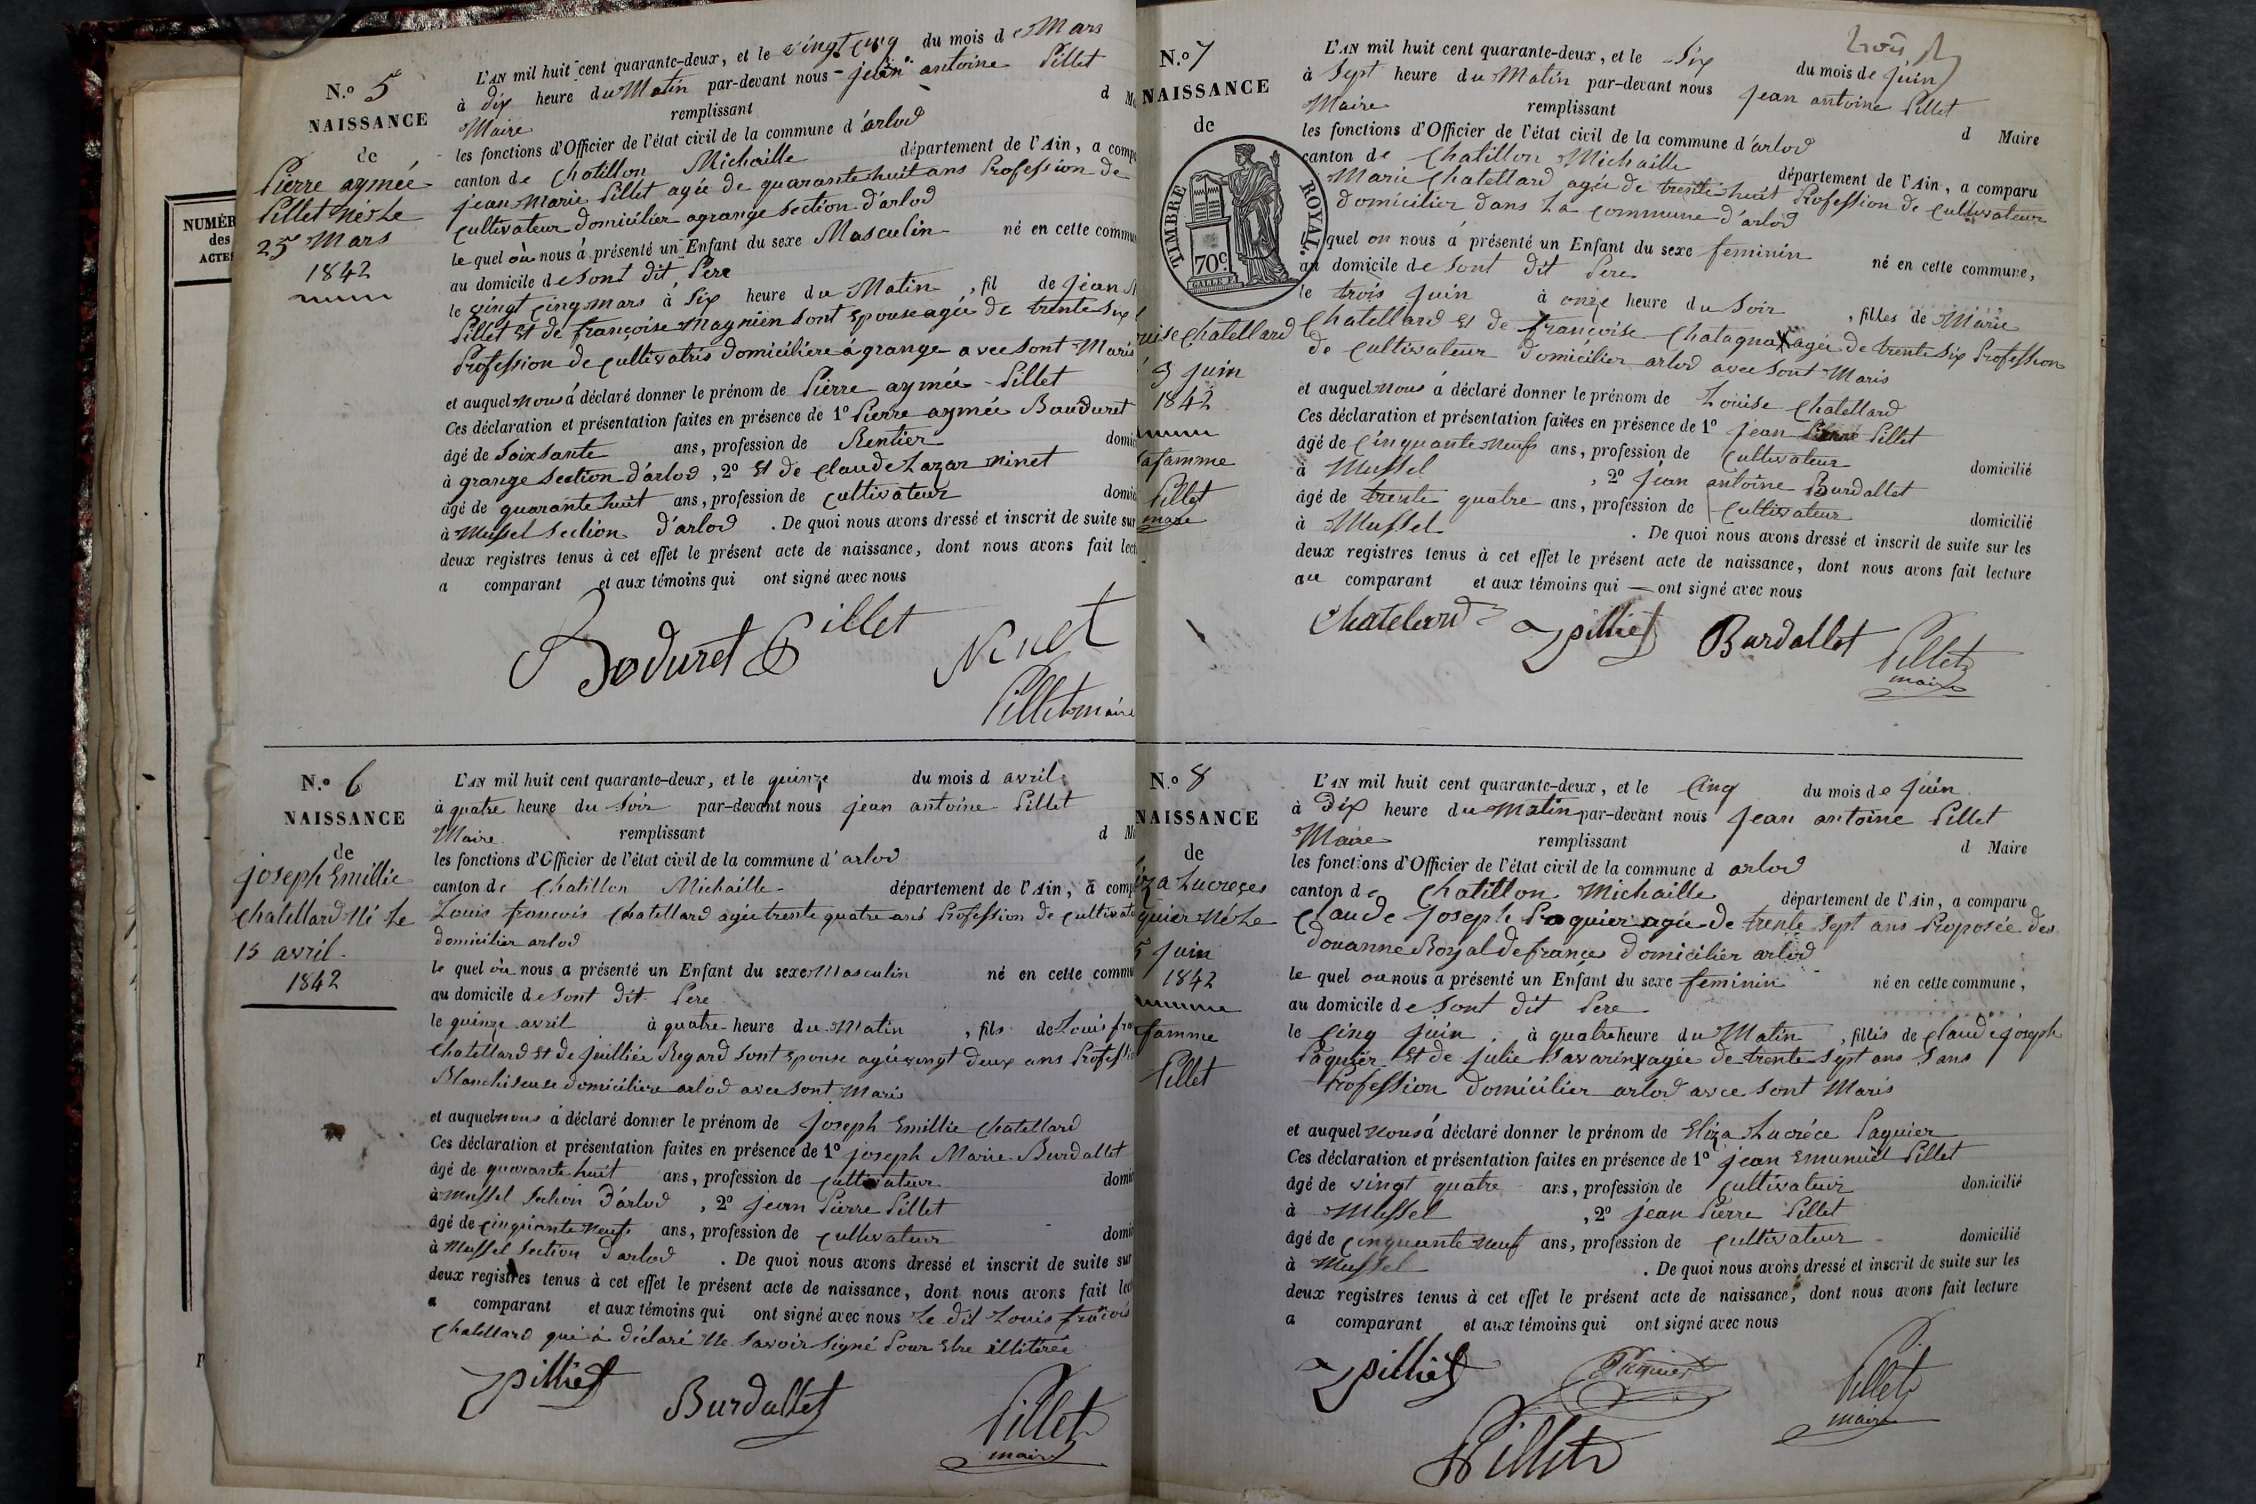 NUMÉR
des
ACTES
N.o 5
NAISSANCE
de
Pierre aymée
Pillet né le
25 Mars
1842
L'AN mil huit cent quarante-deux, et le vingt cinq du mois d Mars
à dix heure du Matin par-devant nous jean antoine Pillet
Maire remplissant d M
les fonctions d'Officier de l'état civil de la commune d'arlod
canton de Chatillon Michaille département de l'Ain, a comp
jean Marie Pillet agée de quarante huit ans Profession de
Cultivateur domicilier a grange Section d'arlod
le quel où nous á présenté un Enfant du sexe Masculin né en cette commu
au domicile de Sont dit Pere
le vingt cinq mars à Six heure du Matin , fil de jean
Pillet Et de françoise Magnien Sont Epouse agée de trente Six
Profession de cultivatris domiciliere á grange avec Sont Maris
et auquel nous á déclaré donner le prénom de Pierre aymée Pillet
Ces déclaration et présentation faites en présence de 1o Pierre aymée Bauduret
âgé de Soixsante ans, profession de Rentier domi
à grange Section d'arlod , 2o Et de Claude Lazar Ninet
âgé de quarante huit ans, profession de Cultivateur domi
à Mussel Section d'arlod . De quoi nous avons dressé et inscrit de suite sur
deux registres tenus à cet effet le présent acte de naissance, dont nous avons fait lec
a comparant et aux témoins qui ont signé avec nous
Boduret Pillet Ninet
Pillet maire
N.o 6
NAISSANCE
de
joseph Emillie
Chatellard Né Le
15 avril
1842
L'AN mil huit cent quarante-deux, et le quinze du mois d avril
à quatre heure du Soir par-devant nous jean antoine Pillet
Maire remplissant d M
les fonctions d'Officier de l'état civil de la commune d'arlod
canton de Chatillon Michaille département de l'Ain, a comp
Louis francois Chatellard agée trente quatre ans Profession de Cultivat
domicilier arlod
le quel où nous a présenté un Enfant du sexe Masculin né en cette commu
au domicile de Sont dit Pere
le quinze avril à quatre heure du Matin , fils de Louis fra
Chatellard Et de juilliée Regard Sont Epouse agée vingt deux ans Professi
Blanchiseuse domiciliere arlod avec Sont Maris
et auquel nous á déclaré donner le prénom de Joseph Emillie Chatellard
Ces déclaration et présentation faites en présence de 1o joseph Marie Burdallet
âgé de quarante huit ans, profession de Cultivateur domi
à Mussel Section d'arlod , 2o jean Pierre Pillet
âgé de Cinquante Neufs ans, profession de Cultivateur domi
à Mussel Section d'arlod . De quoi nous avons dressé et inscrit de suite sur
deux registres tenus à cet effet le présent acte de naissance, dont nous avons fait lec
a comparant et aux témoins qui ont signé avec nous Le dit Louis francois
Chatellard qui á déclaré Ne Savoir Signé Pour Etre illiterée
Jpilliet Burdallet Pillet
maire
trois
N.o 7
NAISSANCE
de
TIMBRE ROYAL.
70c.
uise Chatellard
3 juin
1842
la famme
Pillet
maire
L'AN mil huit cent quarante-deux, et le Six du mois de juin
à Sept heure du Matin par-devant nous jean antoine Pillet
Maire remplissant d Maire
les fonctions d'Officier de l'état civil de la commune d'arlod
canton de Chatillon Michaille département de l'Ain, a comparu
Marie Chatellard agée de trente huit Profession de Cultivateur
domicilier dans La Commune d'arlod
quel on nous á présenté un Enfant du sexe feminin né en cette commune,
au domicile de Sont dit Pere
le trois juin à onze heure du Soir , filles de Marie
Chatellard Et de françoise Chatagna agée de trente Six Profession
de Cultivateur domicilier arlod avec Sont Maris
et auquel nous á déclaré donner le prénom de Louise Chatellard
Ces déclaration et présentation faites en présence de 1o jean Pierre Pillet
âgé de Cinquante Neufs ans, profession de Cultivateur domicilié
à Mussel , 2o jean antoine Burdallet
âgé de trente quatre ans, profession de Cultivateur domicilié
à Mussel . De quoi nous avons dressé et inscrit de suite sur les
deux registres tenus à cet effet le présent acte de naissance, dont nous avons fait lecture
au comparant et aux témoins qui ont signé avec nous
Chatelard Jpilliet Burdallet Pillet
maire
N.o 8
NAISSANCE
de
iza Lucreçes
quier Né Le
5 juin
1842
famme
Pillet
L'AN mil huit cent quarante-deux, et le Cinq du mois de juin
à Dix heure du Matin par-devant nous jean antoine Pillet
Maire remplissant d Maire
les fonctions d'Officier de l'état civil de la commune d arlod
canton de Chatillon Michaille département de l'Ain, a comparu
Claude Joseph Paquier agée de trente Sept ans Proposée des
douanne Royal de françes domicilier arlod
le quel ou nous a présenté un Enfant du sexe feminin né en cette commune,
au domicile de Sont dit Pere
le Cinq juin à quatre heure du Matin , filles de Claude joseph
Paquier Et de julie Savarin agée de trente Sept ans Sans
Profession domicilier arlod avec Sont Maris
et auquel nous á déclaré donner le prénom de Eliza Lucréce Paquier
Ces déclaration et présentation faites en présence de 1o jean Emunuel Pillet
âgé de vingt quatre ans, profession de Cultivateur domicilié
à Mussel , 2o jean Pierre Pillet
âgé de Cinquante Neuf ans, profession de Cultivateur domicilié
à Mussel . De quoi nous avons dressé et inscrit de suite sur les
deux registres tenus à cet effet le présent acte de naissance, dont nous avons fait lecture
a comparant et aux témoins qui ont signé avec nous
Jpilliet Paquier Pillet
maire
Pillet